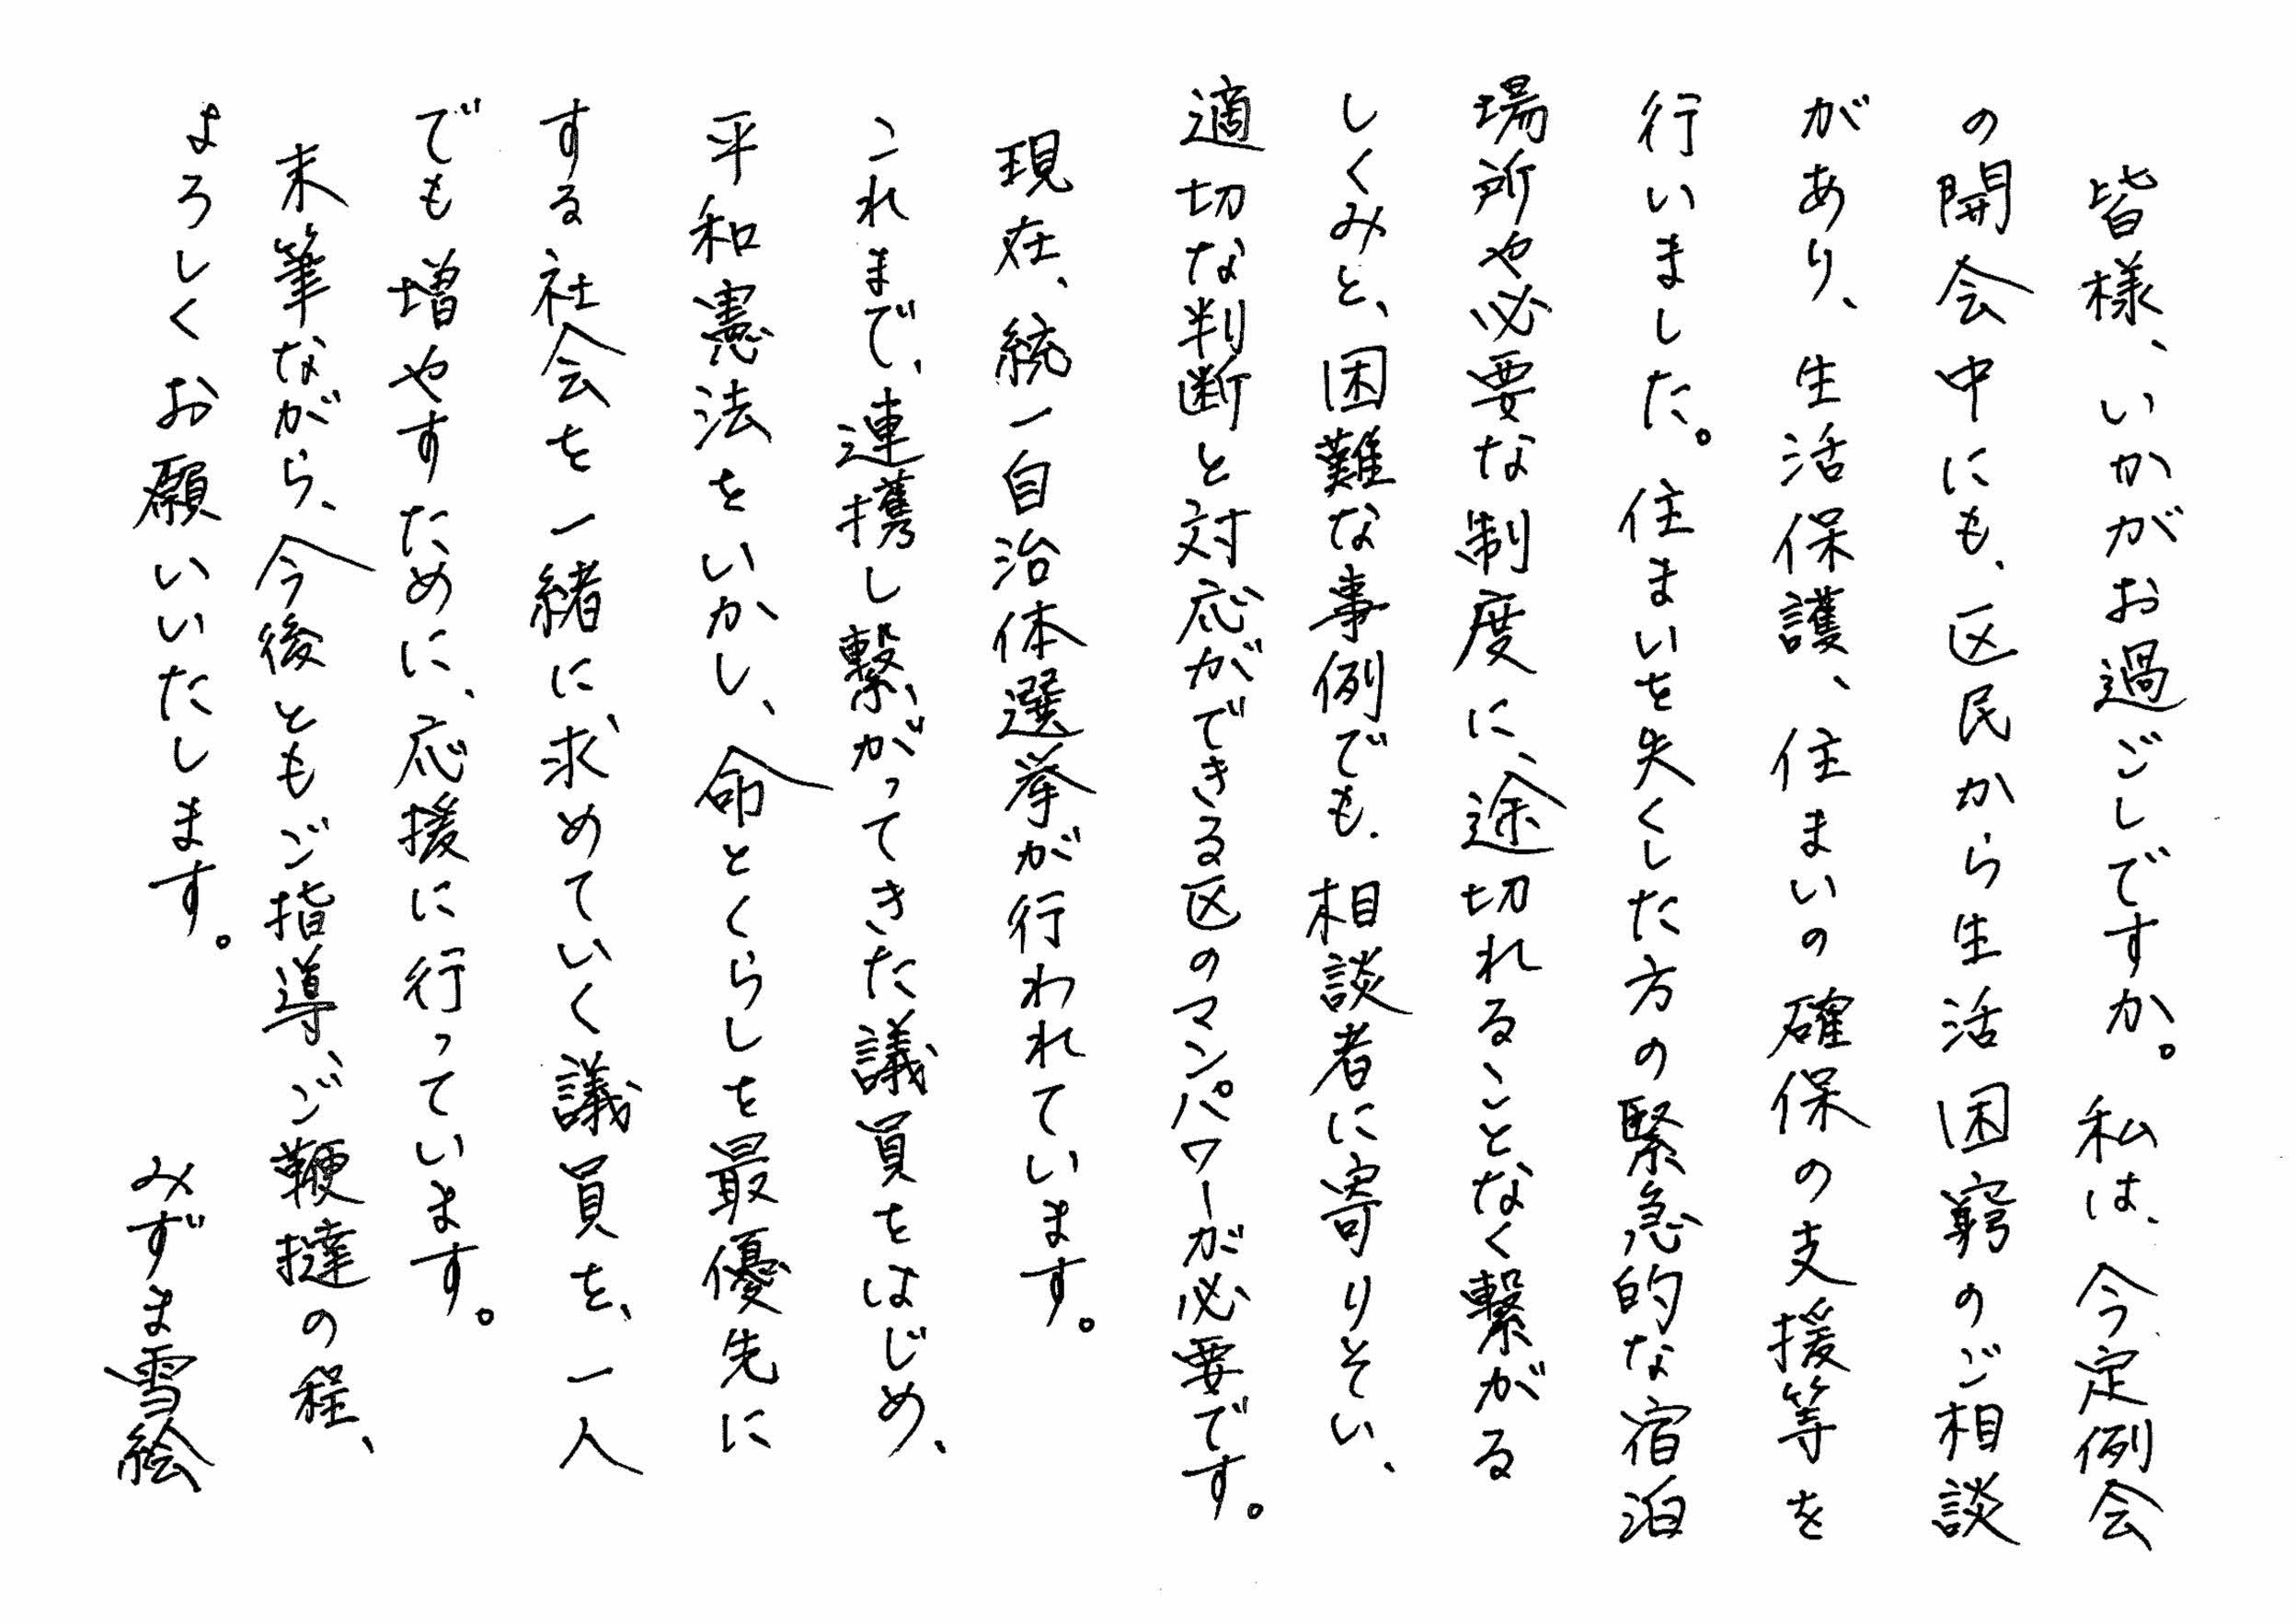 皆様、いかがお過ごしですか。私は、今定例会
の開会中にも、区民から生活困窮のご相談
があり、生活保護、住まいの確保の支援等を
行いました。住まいを失くした方の緊急的な宿泊
場所や必要な制度に、途切れることなく繋がる
しくみと、困難な事例でも、相談者に寄りそい、
適切な判断と対応ができる区のマンパワーが必要です。
現在、統一自治体選挙が行われています。
これまで、連携し繋がってきた議員をはじめ、
平和憲法をいかし、命とくらしを最優先に
する社会を一緒に求めていく議員を、一人
でも増やすために、応援に行っています。
末筆ながら、今後ともご指導、ご鞭撻の程、
よろしくお願いいたします。
みずま雪絵